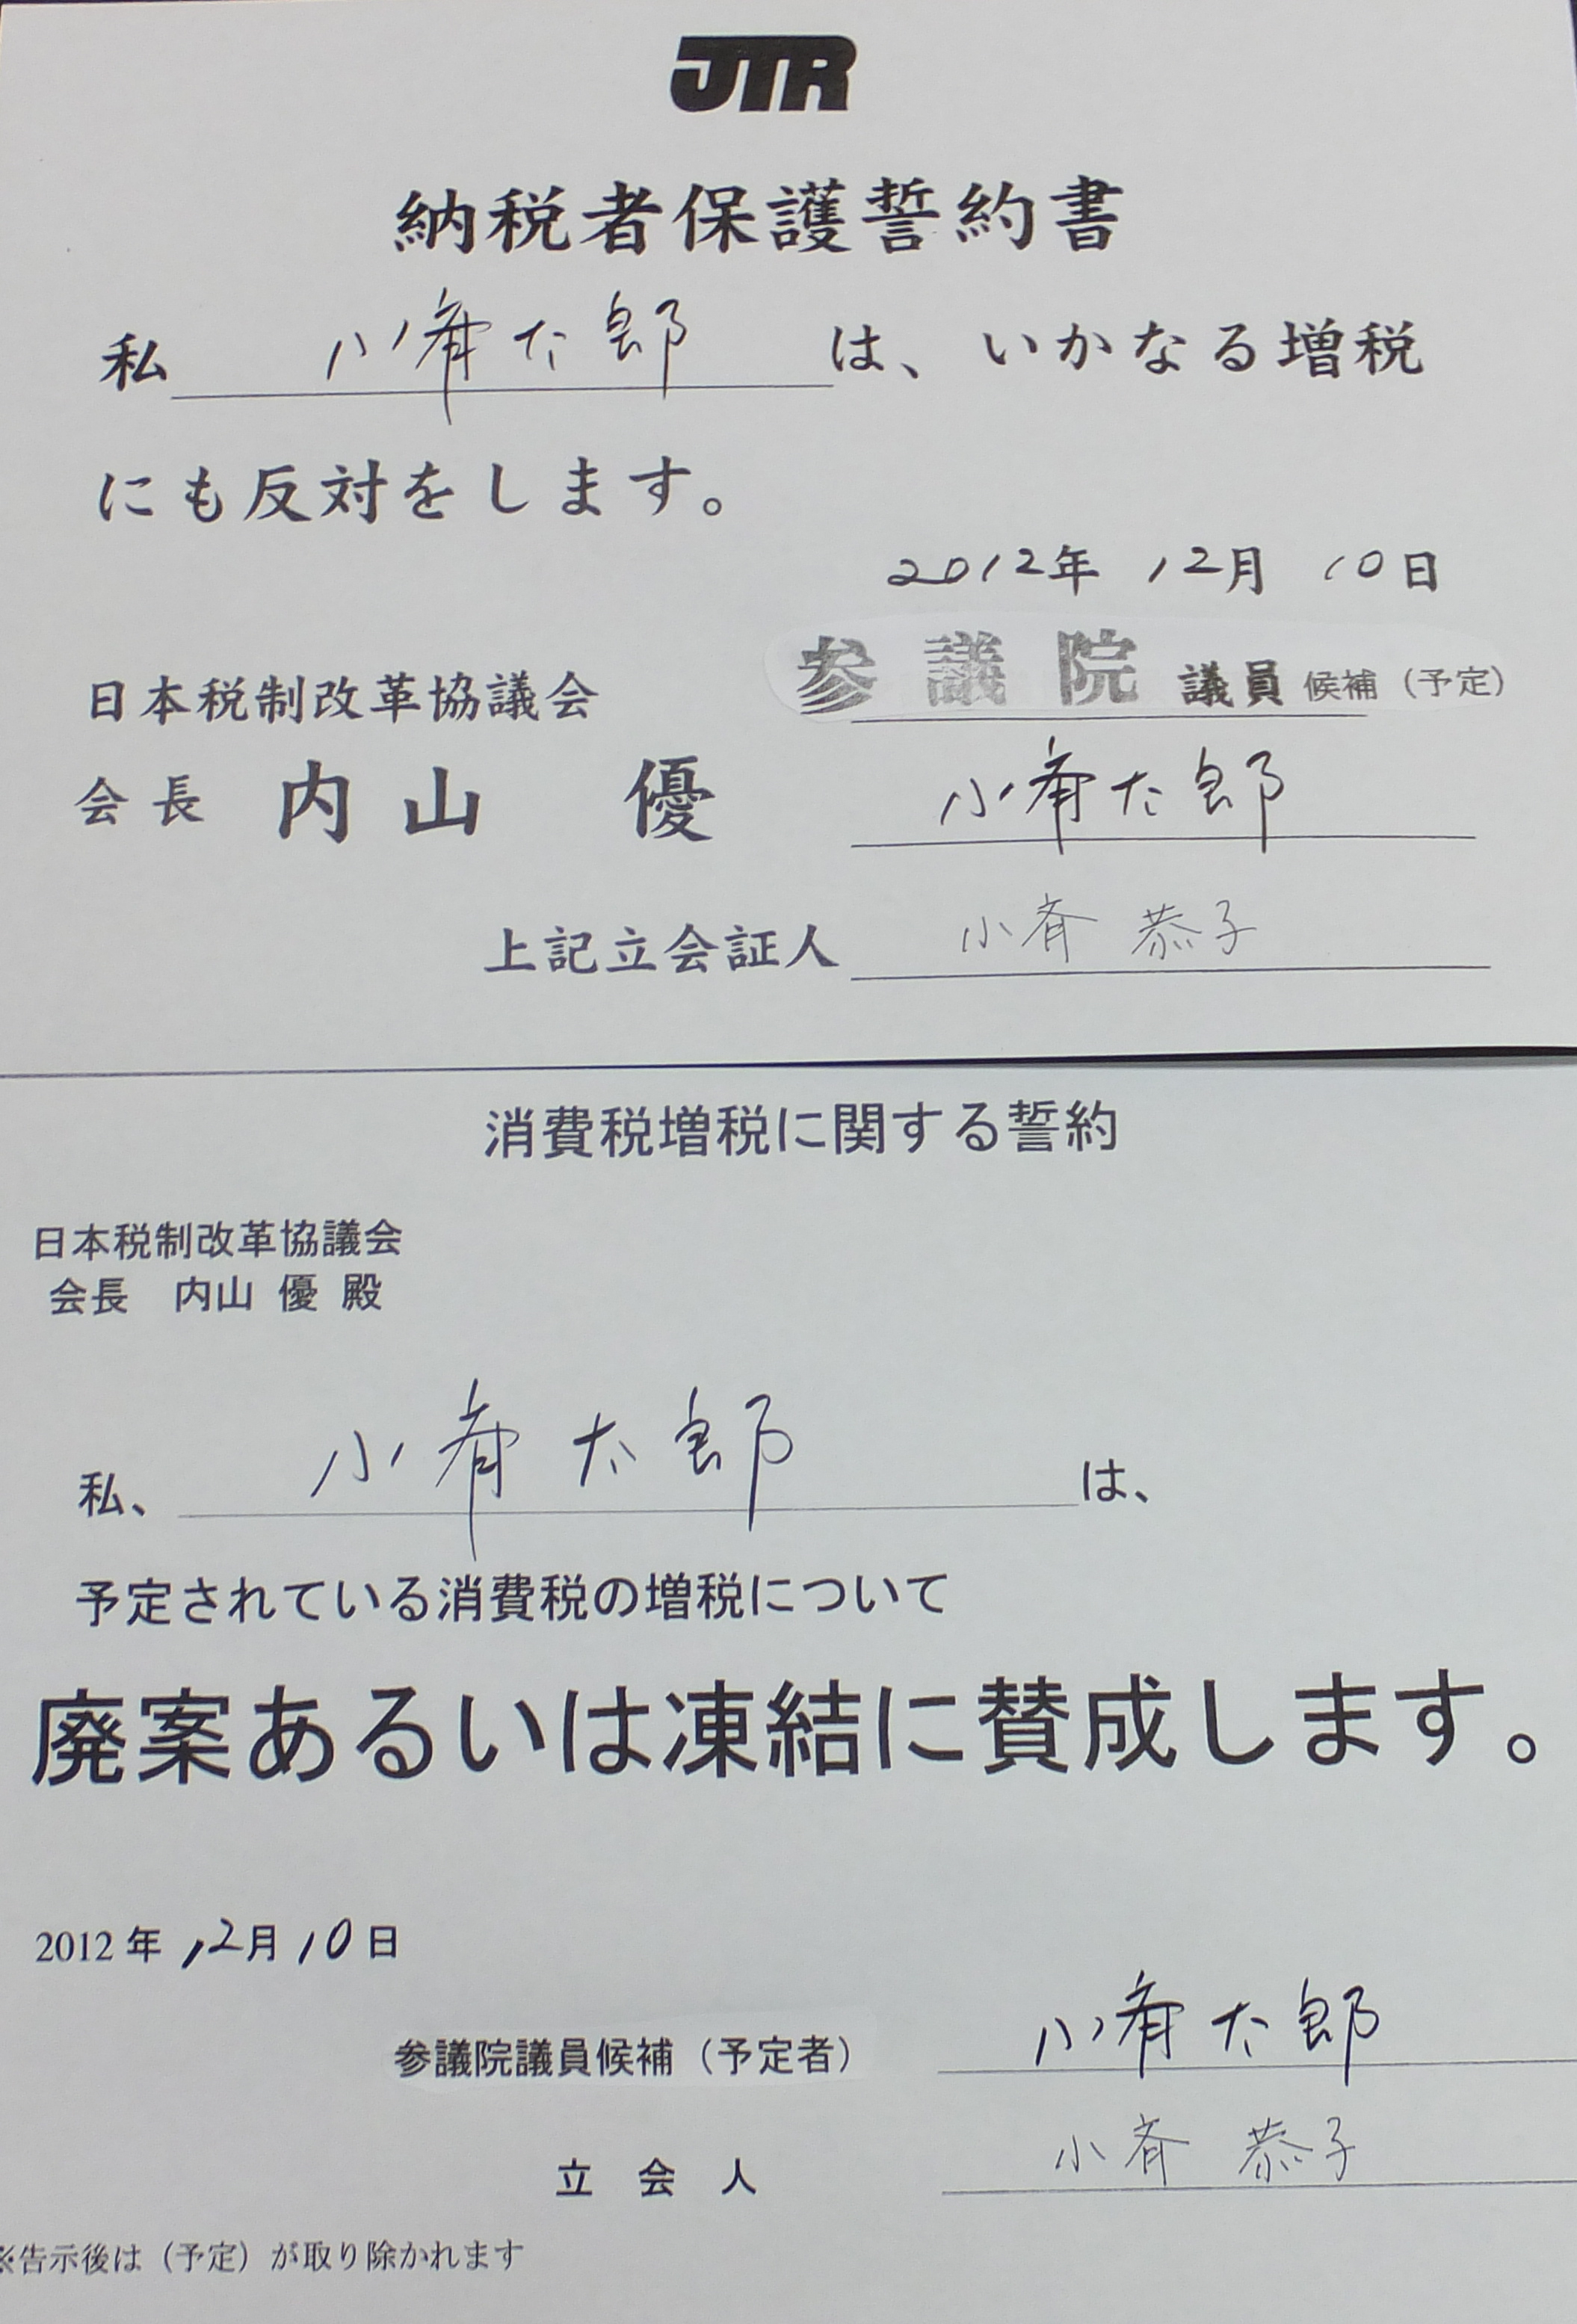 JTR
納税者保護誓約書
私 小斉太郎 は、いかなる増税
にも反対をします。
2012年 12月 10日
日本税制改革協議会 参議院 議員 候補（予定）
会長 内山 優 小斉太郎
上記立会証人 小斉 恭子
消費税増税に関する誓約
日本税制改革協議会
会長 内山 優 殿
私、 小斉太郎 は、
予定されている消費税の増税について
廃案あるいは凍結に賛成します。
2012年 12月 10日
参議院議員候補（予定者） 小斉太郎
立会人 小斉 恭子
※告示後は（予定）が取り除かれます